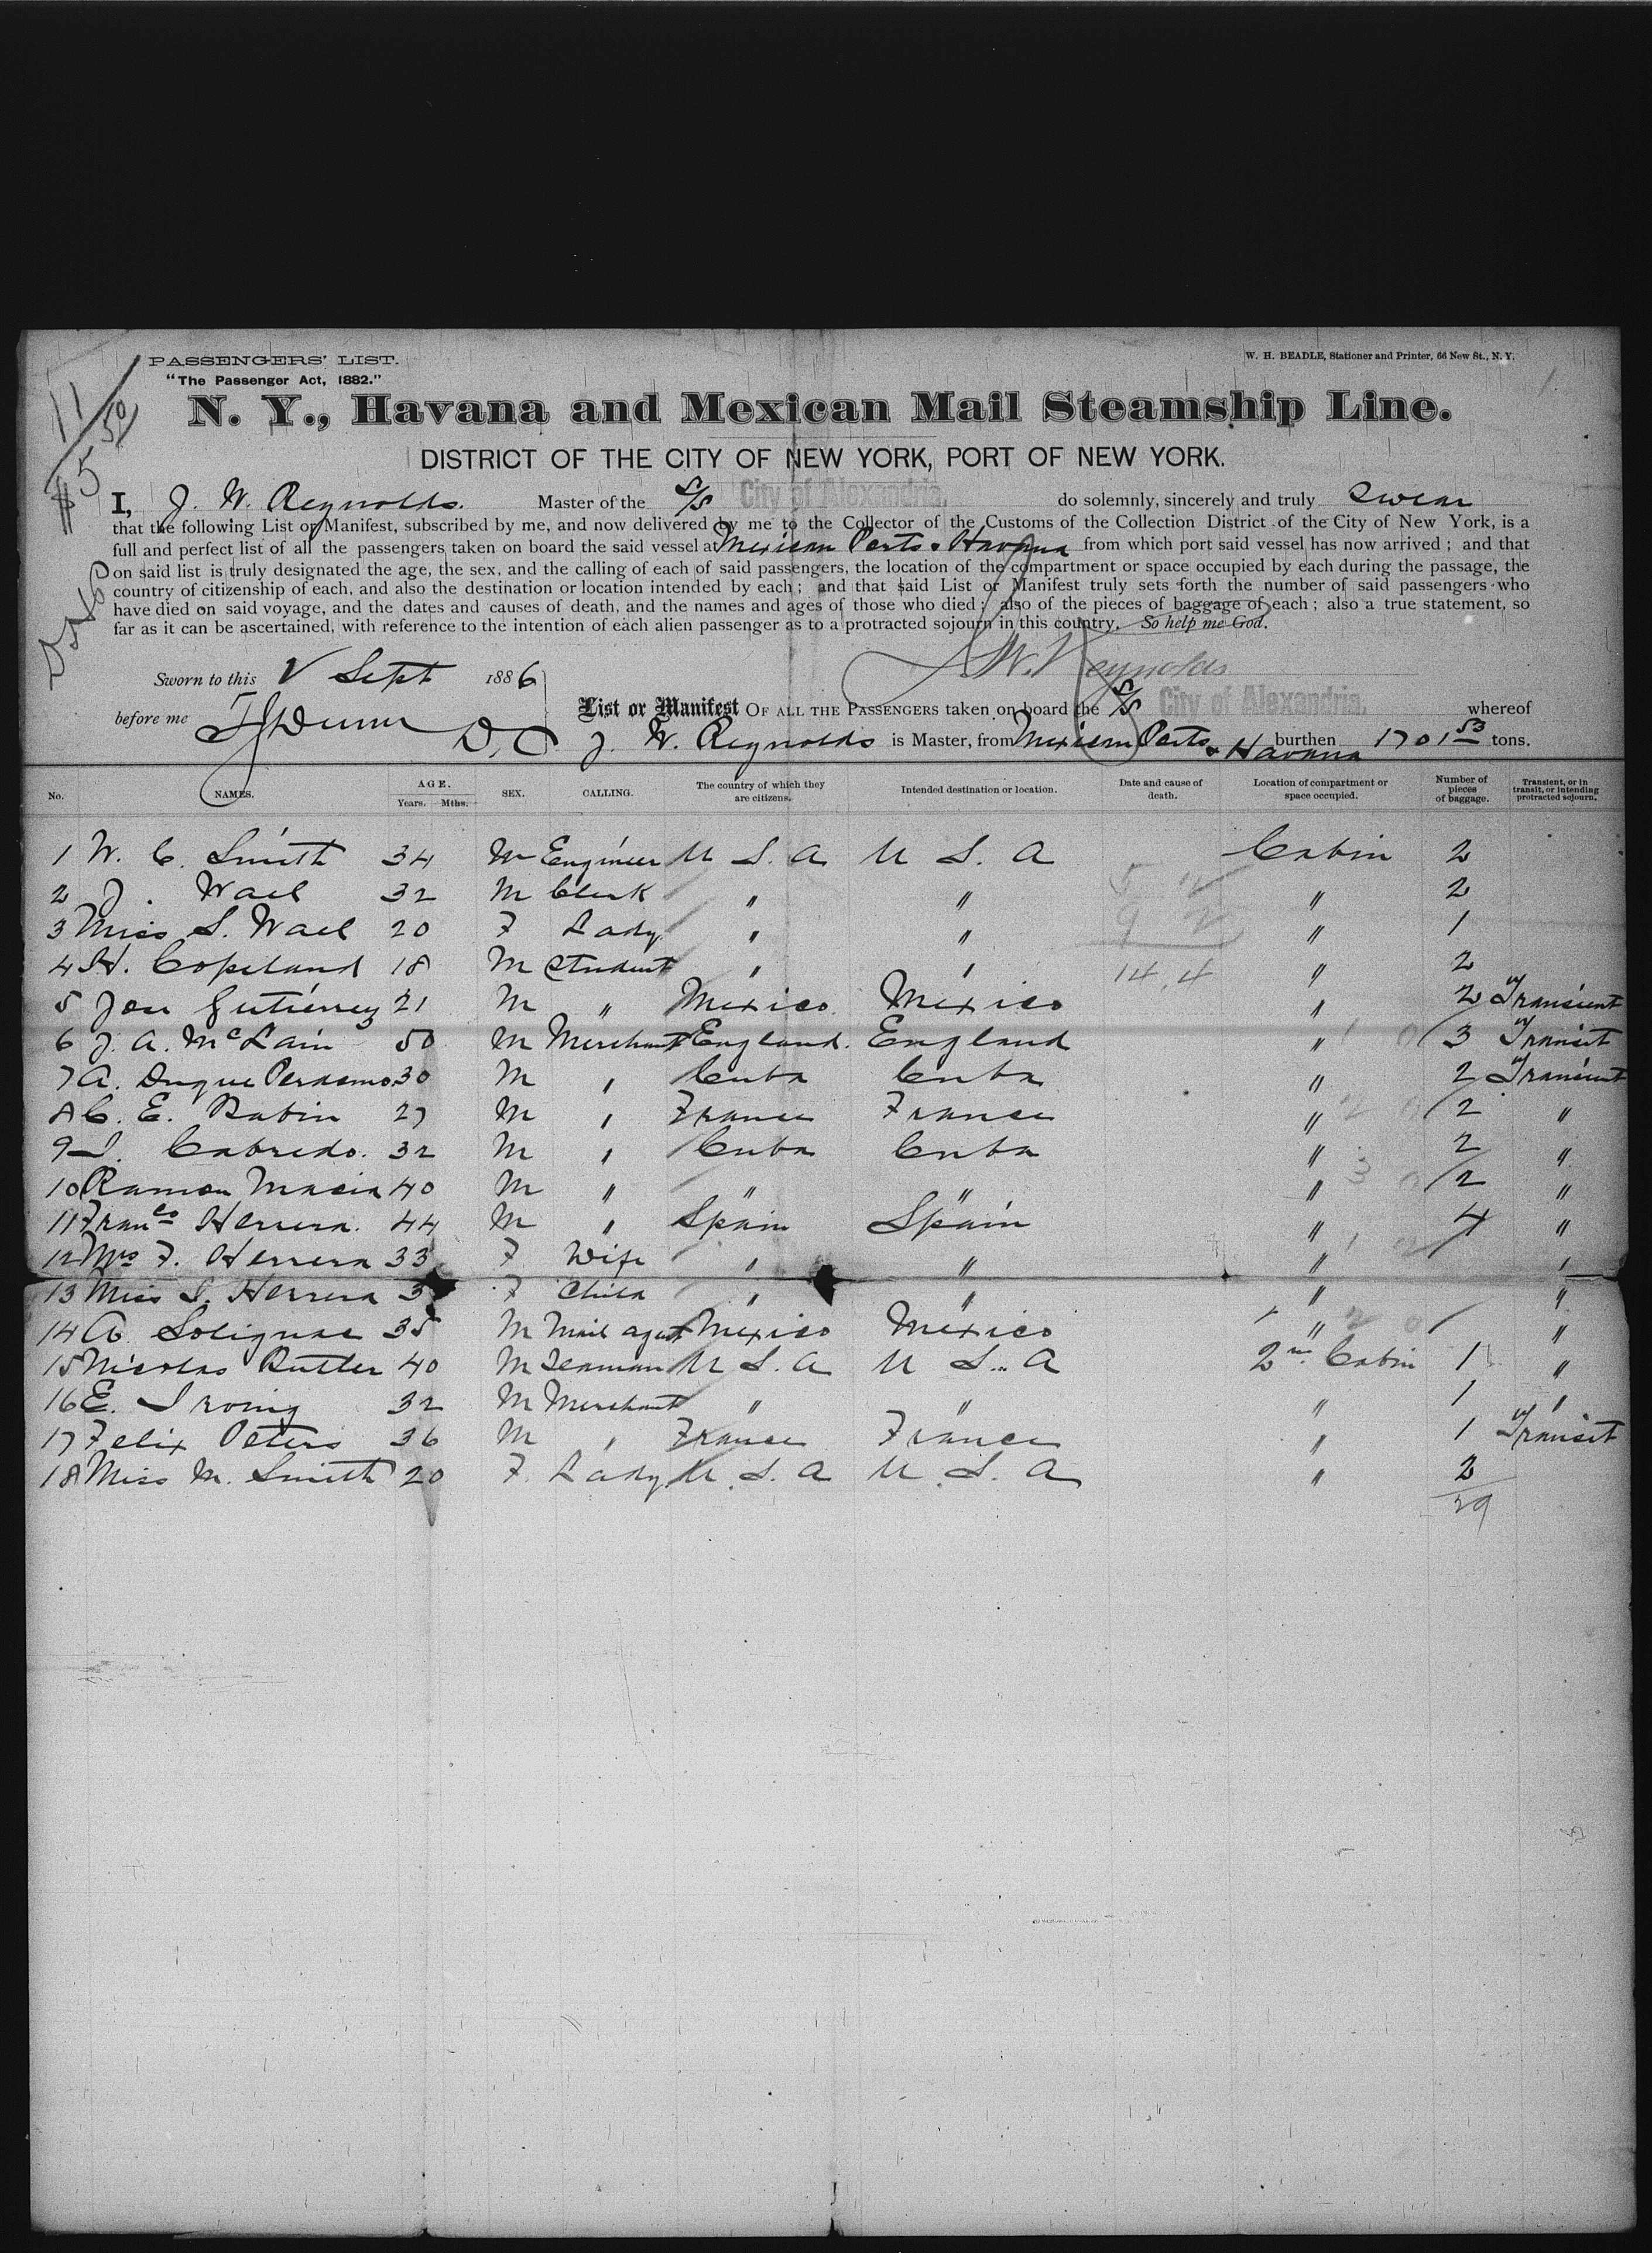 PASSENGERS' LIST.
W. H. BEADLE, Stationer and Printer, 66 New St., N. Y.
"The Passenger Act, 1882."
11
$5 50
N. Y., Havana and Mexican Mail Steamship Line.
DISTRICT OF THE CITY OF NEW YORK, PORT OF NEW YORK.
I, J. W. Reynolds. Master of the S/S City of Alexandria, do solemnly, sincerely and truly swear
that the following List or Manifest, subscribed by me, and now delivered by me to the Collector of the Customs of the Collection District of the City of New York, is a
full and perfect list of all the passengers taken on board the said vessel at Mexican Ports & Havana from which port said vessel has now arrived; and that
on said list is truly designated the age, the sex, and the calling of each of said passengers, the location of the compartment or space occupied by each during the passage, the
country of citizenship of each, and also the destination or location intended by each; and that said List or Manifest truly sets forth the number of said passengers who
have died on said voyage, and the dates and causes of death, and the names and ages of those who died; also of the pieces of baggage of each; also a true statement, so
far as it can be ascertained, with reference to the intention of each alien passenger as to a protracted sojourn in this country. So help me God.
J. W. Reynolds
Sworn to this V Sept 1886
before me TJ Dunn D. C
List or Manifest OF ALL THE PASSENGERS taken on board the S/S City of Alexandria, whereof
J. W. Reynolds is Master, from Mexican Ports & Havana burthen 1701 53 tons.
No. NAMES. AGE. Years. Mths. SEX. CALLING. The country of which they are citizens. Intended destination or location. Date and cause of death. Location of compartment or space occupied. Number of pieces of baggage. Transient, or in transit, or intending protracted sojourn.
1 W. C. Smith 34 M Engineer U S. A U S. A Cabin 2
2 J. Wael 32 M Clerk " " " 2
3 Miss S. Wael 20 F Lady " " " 1
4 H. Copeland 18 M Student " " 14.4 " 2
5 Jose Gutierrez 21 M " Mexico Mexico " 2 Transient
6 J. A. McLain 50 M Merchant England. England " 3 Transit
7 A. Duque Perdomo 30 M " Cuba Cuba " 2 Transient
8 C. E. Rabin 27 M " France France " 2 "
9 I. Cabredo. 32 M " Cuba Cuba " 2 "
10 Ramon Macia 40 M " " " " 2 "
11 Franco Herrera. 44 M " Spain Spain " 4 "
12 Mrs F. Herrera 33 F Wife " " " "
13 Miss I. Herrera 3 F Child " " " "
14 A. Solignac 35 M Mail agent Mexico Mexico " 1 "
15 Nicolas Rutler 40 M Seaman U S. A U S. A 2nd Cabin 1 "
16 E. Irving 32 M Merchant " " " 1 "
17 Felix Peters 36 M " France France " 1 Transit
18 Miss M. Smith 20 F. Lady U S. A U. S. A " 2
29